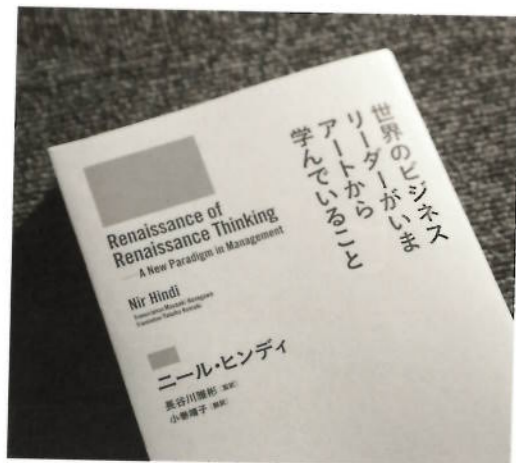 世界のビジネス
リーダーがいま
アートから
学んでいること
Renaissance of
Renaissance Thinking
—A New Paradigm in Management
Nir Hindi
ニール・ヒンディ
長谷川雅彬［監訳］
小巻靖子［翻訳］